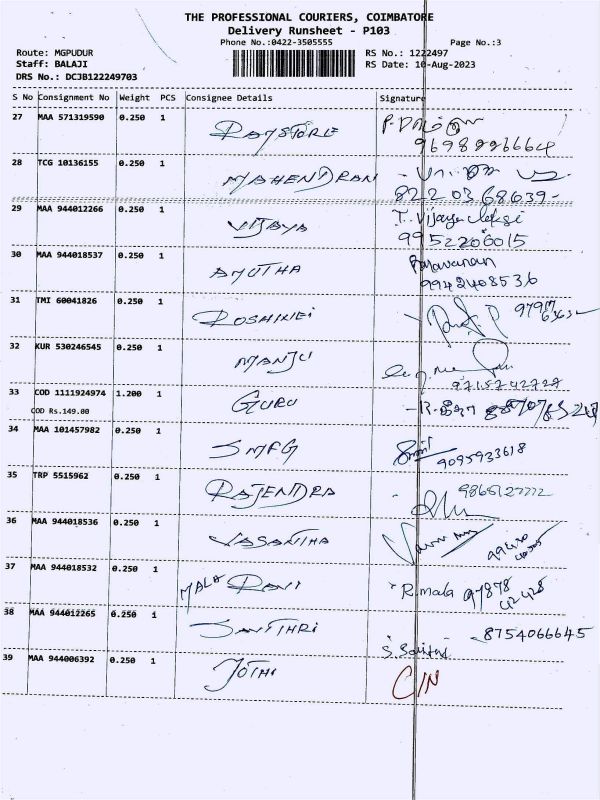 THE PROFESSIONAL COURIERS, COIMBATORE
Delivery Runsheet - P103
Phone No.:0422-3505555 Page No.:3
Route: MGPUDUR RS No.: 1222497
Staff: BALAJI RS Date: 10-Aug-2023
DRS No.: DCJB122249703
S No Consignment No Weight PCS Consignee Details Signature
27 MAA 571319590 0.250 1
9698996664
28 TCG 10136155 0.250 1 MAHENDRAN
82203 68639-
29 MAA 944012266 0.250 1 VIJAYA T. Vijaya
9952206015
30 MAA 944018537 0.250 1 AMUTHA
9942408536
31 TMI 60041826 0.250 1 ROSHINEI
32 KUR 530246545 0.250 1 MANJU
9715742727
33 COD 1111924974 1.200 1 GURU
COD Rs.149.00
34 MAA 101457982 0.250 1 SMFG
9095933618
35 TRP 5515962 0.250 1 RAJENDRA
36 MAA 944018536 0.250 1 VASANTHA
37 MAA 944018532 0.250 1 MALA RAVI R. mala 97878
42428
38 MAA 944012265 0.250 1 8754066645
39 MAA 944006392 0.250 1 JOTHI C/N